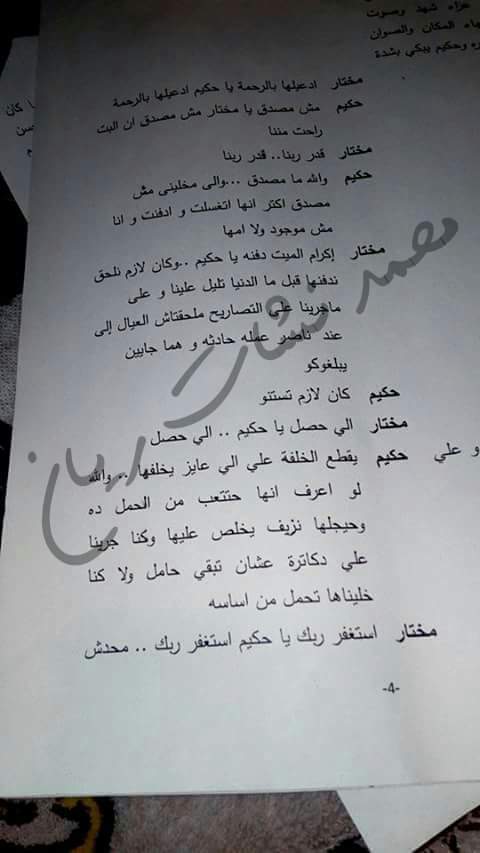 عزاء شهد وصوت
المكان والصوان
وحكيم يبكي بشدة
مختار ادعيلها بالرحمة يا حكيم ادعيلها بالرحمة
حكيم مش مصدق يا مختار مش مصدق ان البت
راحت مننا
مختار قدر ربنا.. قدر ربنا
حكيم والله ما مصدق ...والى مخلينى مش
مصدق اكتر انها اتغسلت و ادفنت و انا
مش موجود ولا امها
مختار إكرام الميت دفنه يا حكيم ..وكان لازم نلحق
ندفنها قبل ما الدنيا تليل علينا و على
ماجرينا على التصاريح ملحقتاش العيال إلى
عند ناصر عمله حادثه و هما جايين
يبلغوكو
حكيم كان لازم تستنو
مختار الي حصل يا حكيم .. الي حصل
حكيم يقطع الخلفة علي الي عايز يخلفها .. والله
لو اعرف انها حتتعب من الحمل ده
وحيجلها نزيف يخلص عليها وكنا جرينا
علي دكاترة عشان تبقي حامل ولا كنا
خليناها تحمل من اساسه
مختار استغفر ربك يا حكيم استغفر ربك .. محدش
-4-
و علي
كان
محمد نشات ريان